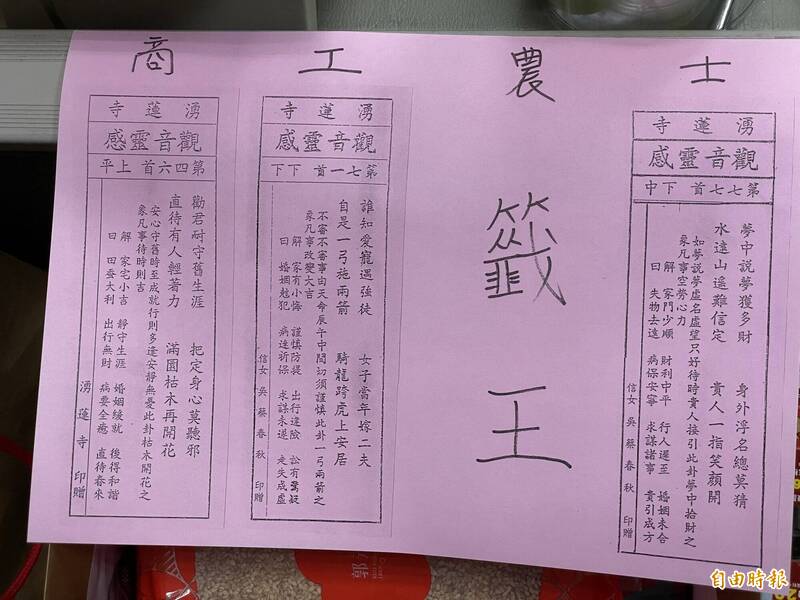 士
農
工
商
籤王
湧蓮寺
觀音靈感
第七七首 下中
夢中說夢獲多財 身外浮名總莫猜
水遠山遙難信定 貴人一指笑顏開
如夢說夢虛名虛望只好待時貴人接引此卦夢中拾財之
象凡事空勞心力
解 家門少順 財利中平 行人遲至 婚姻未合
曰 失物去遠 病保安寧 求謀諸事 貴引成方
信女 吳蔡春秋 印贈
湧蓮寺
觀音靈感
第七一首 下下
誰知愛寵遇強徒 女子當年嫁二夫
自是一弓施兩箭 騎龍跨虎上安居
不審不審事由天命辰午中間切須謹慎此卦一弓兩箭之
象凡事改變大吉
解 家有小悔 謹慎防提 出行違險 訟有驚疑
曰 婚姻尅犯 病速祈保 求謀未遂 走失成虛
信女 吳蔡春秋 印贈
湧蓮寺
觀音靈感
第四六首 上平
勸君耐守舊生涯 把定身心莫聽邪
直待有人輕著力 滿園枯木再開花
安心守舊時至成就行則多逢安靜無憂此卦枯木開花之
象凡事待時則吉
解 家宅小吉 靜守生涯 婚姻緩就 後得和諧
曰 田蚕大利 出行無財 病要全癒 直待春來
湧蓮寺 印贈
自由時報